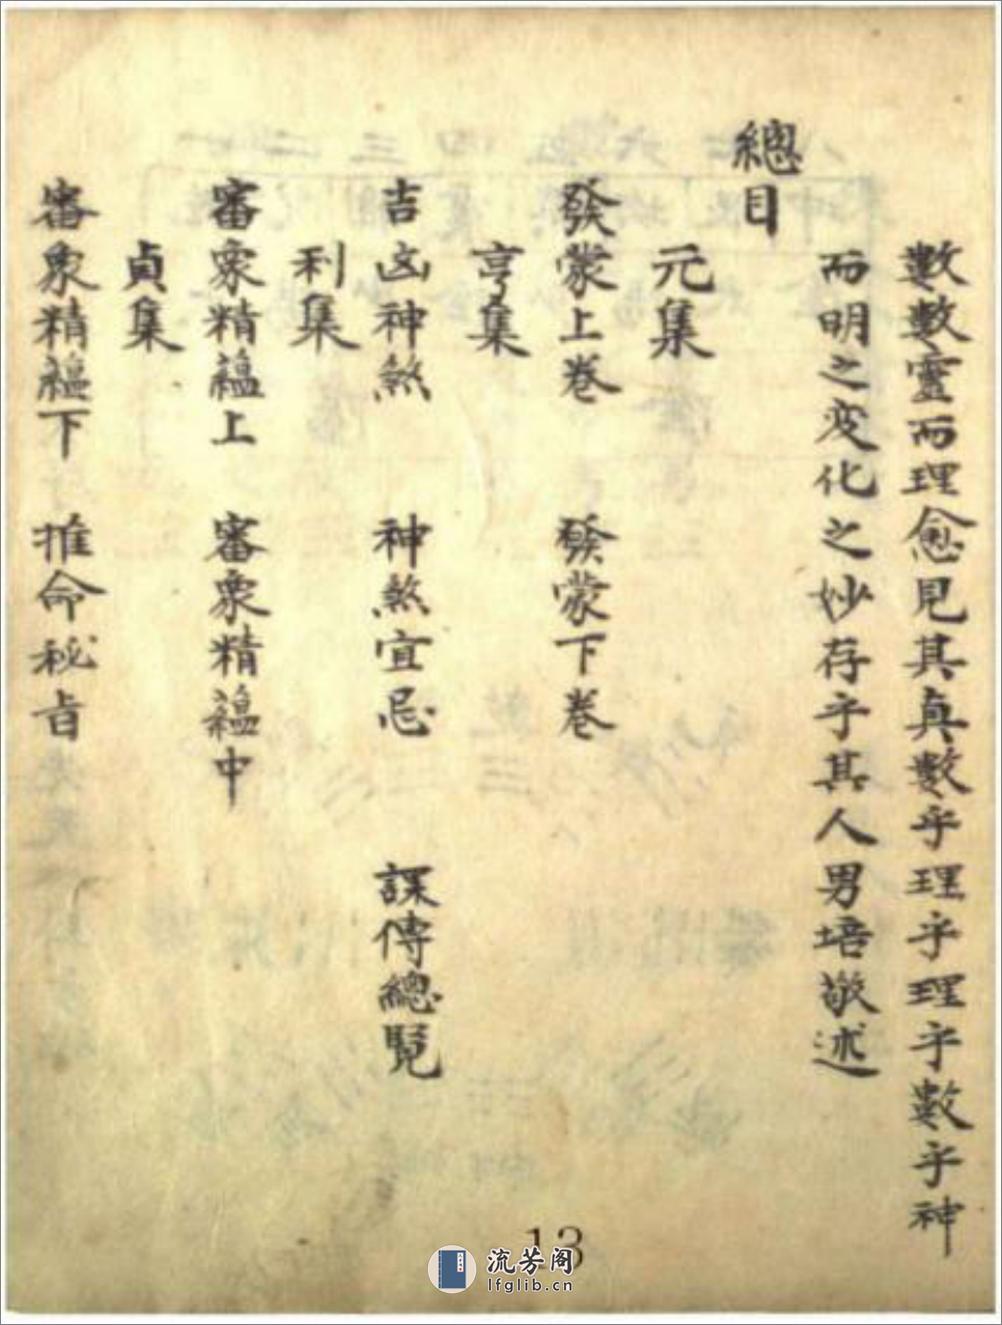 數數靈而理愈見其真數乎理乎理乎數乎神
而明之変化之妙存乎其人男培敬述
總目
元集
發蒙上卷 發蒙下卷
亨集
吉凶神煞 神煞宜忌 課傳總覽
利集
審象精蘊上 審象精蘊中
貞集
審象精蘊下 推命秘旨
13
流芳阁
lfglib.cn